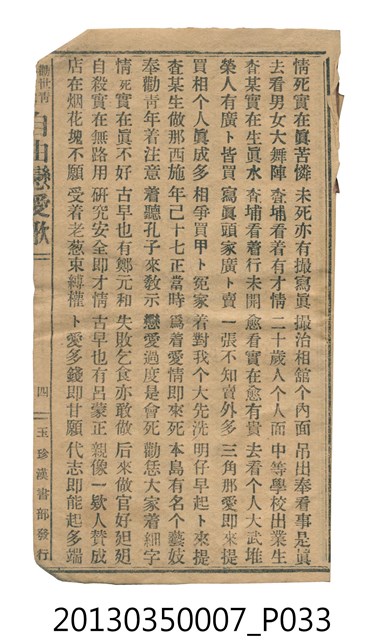 情死實在眞苦憐 未死亦有撮寫眞 撮治相舘个內面 吊出奉看事是眞
去看男女大舞陣 查埔看着有才情 二十歲人个人而 中等學校出業生
查某實在生眞水 查埔看着行未開 愈看實在愈有貴 去看个人大武堆
榮人有廣卜皆買 寫眞頭家廣卜賣 一張不知賣外多 三角那愛即來提
買相个人眞成多 相爭買甲卜冤家 着對我个大先洗 明仔早起卜來提
查某生做那西施 年己十七正當時 爲着愛情即來死 本島有名个藝妓
奉勸靑年着注意 着聽孔子來敎示 戀愛過度是會死 勸恁大家着細字
情死實在眞不好 古早也有鄭元和 失敗乞食亦敢做 后來做官好𡜵𡜵
自殺實在無路用 研究安全即才情 古早也有呂蒙正 親像一欵人賛成
店在烟花塊不願 受着老葱束縛權 卜愛多錢即甘願 代志即能起多端
勸世靑 自由戀愛歌 四 玉珍漢書部發行
20130350007_P033